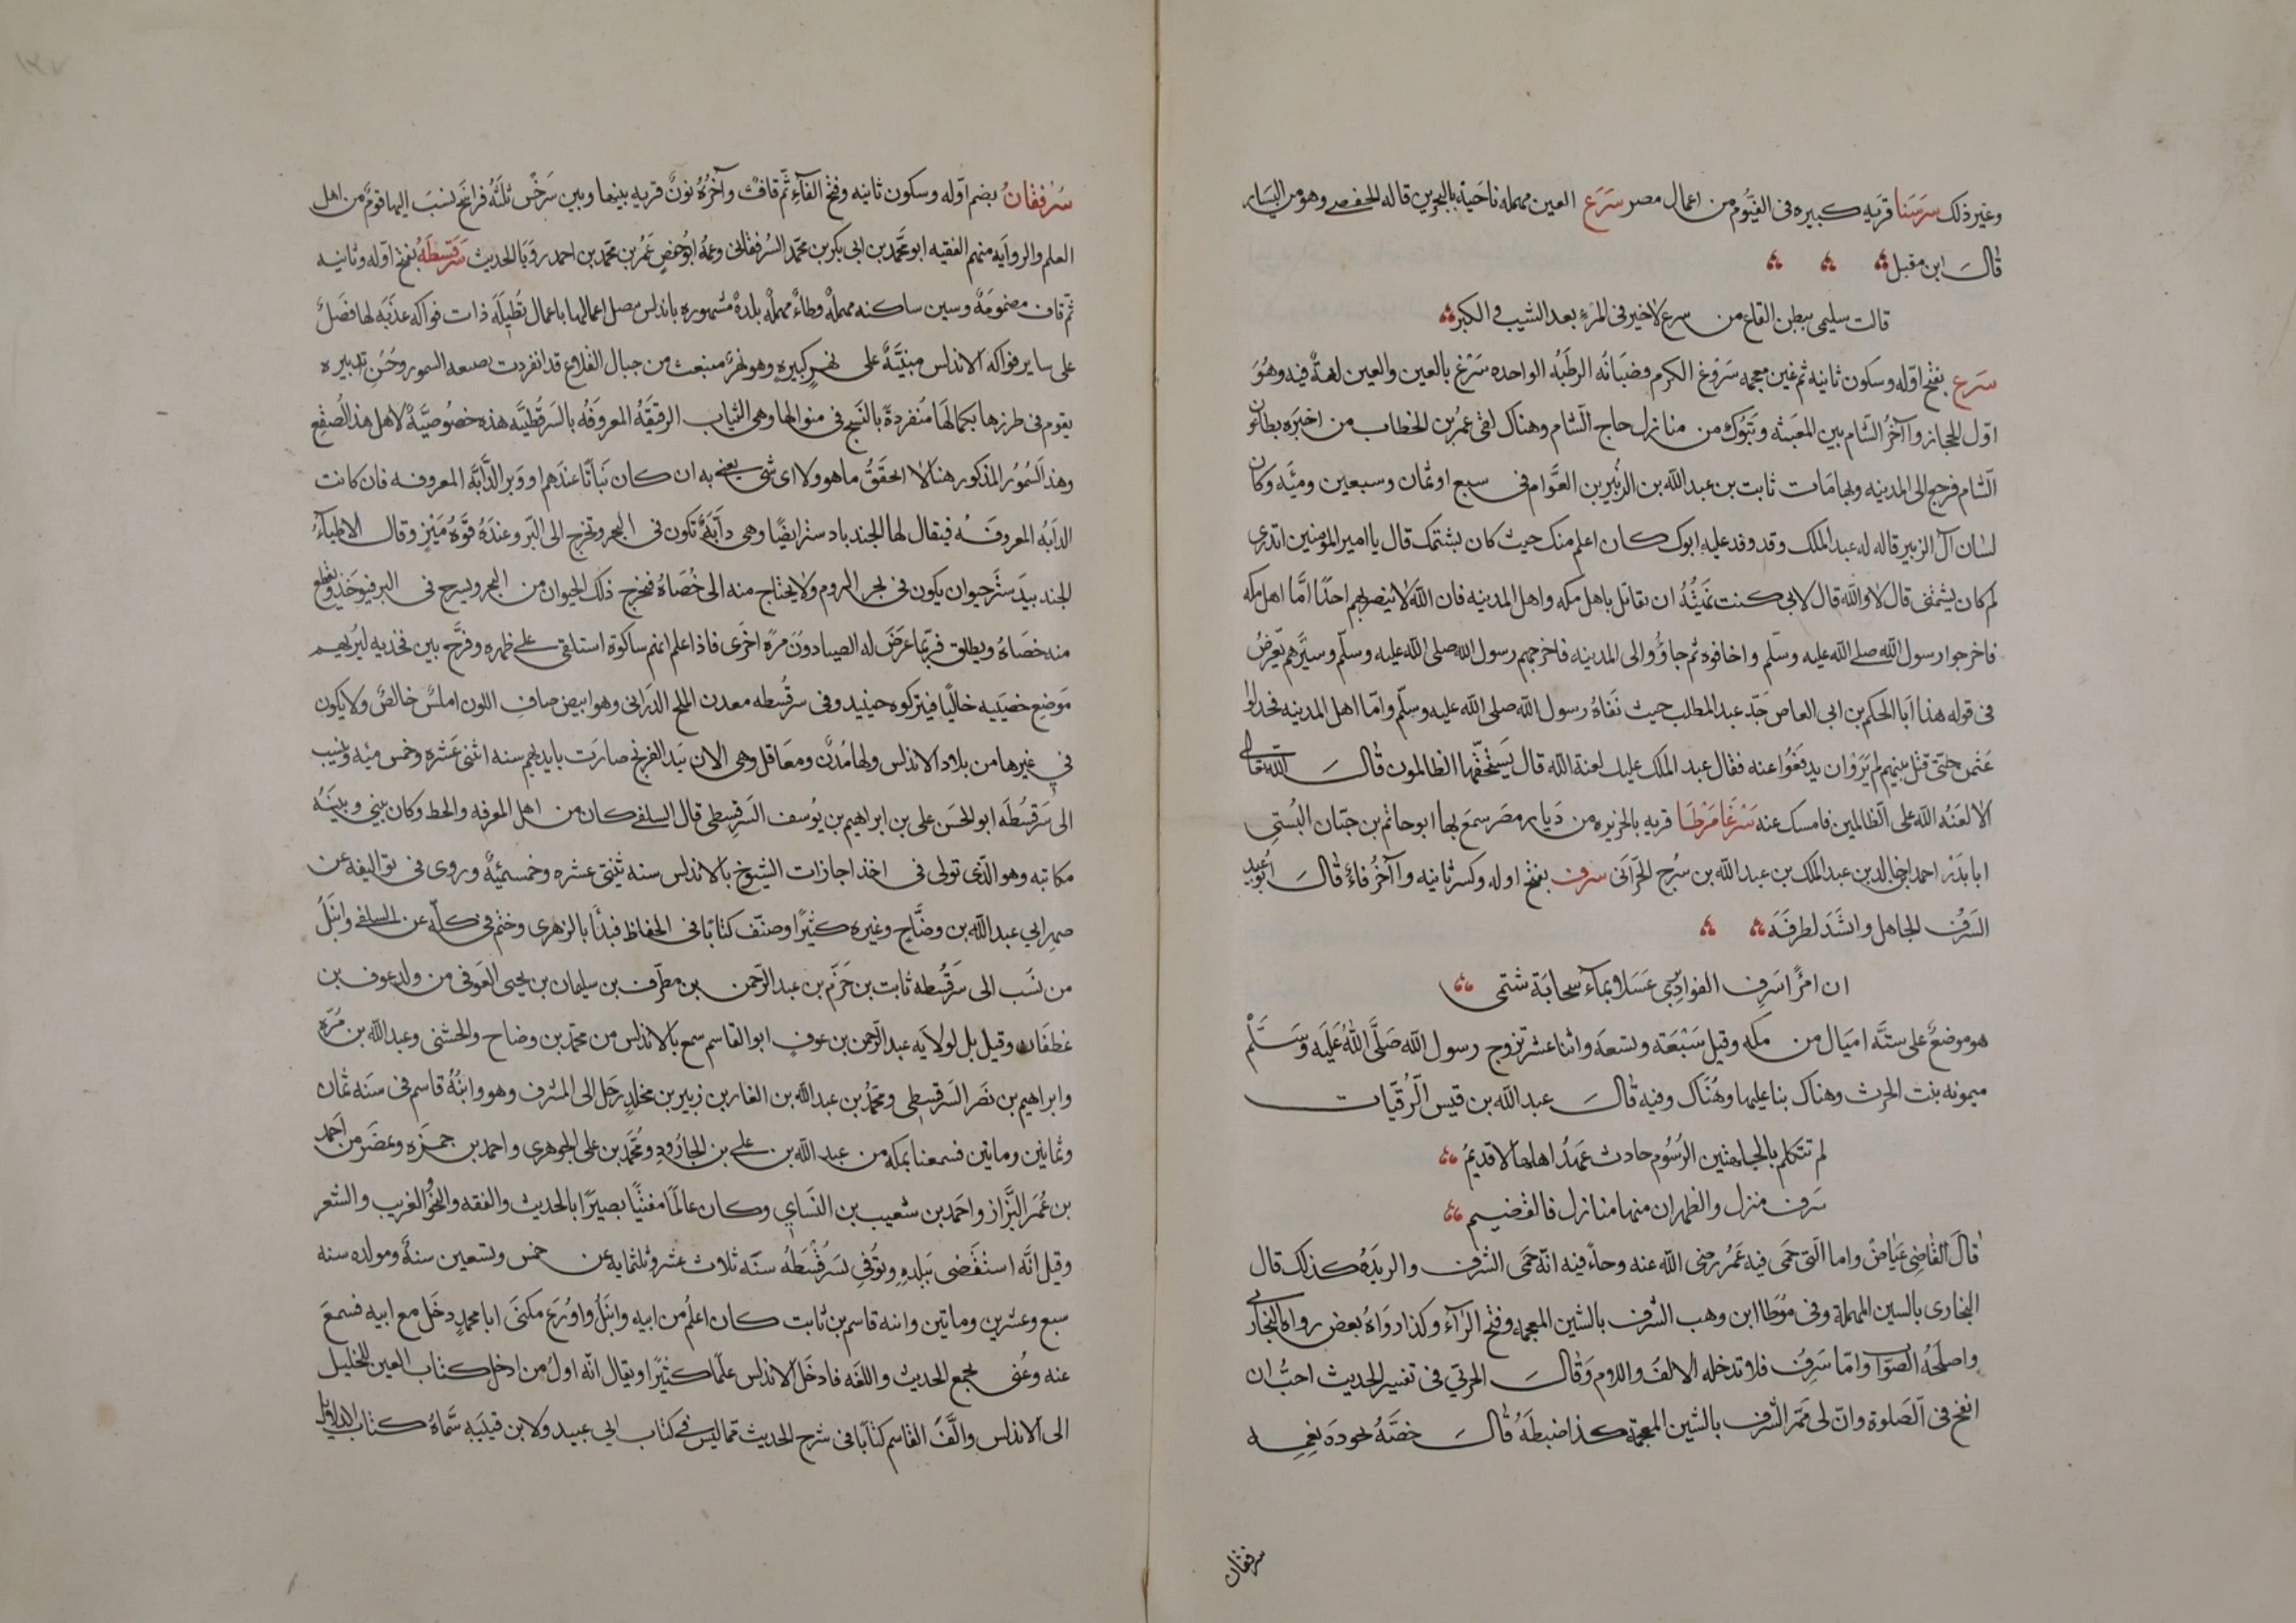 وغير ذلك سرسنا قرية كبيره فى الفيّوم من اعمال مصر سرع العين مهمله ناحية بالبحرين قاله الحفصى وهو من اليسار
قال ابن مقبل
قالت سليمى ببطن القاع من سرع لا خير فى المرء بعد الشيب و الكبر
سرع بفتح اوّله وسكون ثانيه ثم غين معجمه سروغ الكرم قضبانه الرطبه الواحده سرغ بالعين والعين لغة فيه وهو
اوّل الحجاز وآخر الشام بين المغيثه وتبوك من منازل حاج الشام وهناك لقى عمر بن الخطاب من اخبره بطاعون
الشام فرجع الى المدينه وبها مات ثابت بن عبد الله بن الزبير بن العوّام فى سبع او ثمان وسبعين وميّه وكان
لسان آل الزبير قاله له عبد الملك وقد وفد عليه ابوك كان اعلم منك حيث كان يشتمك قال يا امير المؤمنين اتدرى
لم كان يشتمنى قال لا والله قال لانى كنت نهيته ان يقاتل باهل مكه واهل المدينه فان الله لا ينصر بهم احدًا امّا اهل مكه
فاخرجوا رسول الله صلى الله عليه وسلّم واخافوه ثم جاؤوا الى المدينه فاخرجهم رسول الله صلى الله عليه وسلّم وسيّرهم يعرّض
فى قوله هذا ابا الحكم بن ابى العاص جدّ عبد المطلب حيث نفاه رسول الله صلى الله عليه وسلّم وامّا اهل المدينه فخذلوا
عثمن حتّى قتل بينهم لم يروا ان يدفعوا عنه فقال عبد الملك عليك لعنة الله قال يستحقّها الظالمون قال الله تعالى
الا لعنه الله على الظالمين فامسك عنه سرغامرطا قريه بالجزيره من ديار مصر سمع بها ابو حاتم بن حبّان البستى
ابا بدر احمد بن خالد بن عبد الملك بن عبد الله بن سرح الحرّانى سرف بفتح اوله وكسر ثانيه وآخره فاء قال ابو عبيد
السرف الجاهل وانشد لطرفه
ان امرًا سرف الفواد يرى عسلا بماء سحابة شتمى
هو موضع على ستّه اميال من مكه وقيل سبعة وتسعه واثنا عشر تزوج رسول الله صلّى الله عليه وسلّم
ميمونه بنت الحرث وهناك بنا عليها وهناك وفيه قال عبد الله بن قيس الرقيّات
لم تتكلم بالجلهتين الرسوم حادث عهد اهلها ام قديم
سرف منزل والظهران منها منازل فالقضيم
قال القاضى عياض واما الّتى حمى فيه عمر رضى الله عنه وجاء فيه انّه حمى الشرف والربذه كذلك قال
البخارى بالسين المهملة وفى موطا ابن وهب الشرف بالشين المعجمه وفتح الراء وكذا رواه بعض رواه البخارى
واصلحه الصوّا وامّا سرف فلا تدخله الالف واللام وقال الحربى فى تفسير الحديث احبّ ان
انفخ فى الصلوة وان لى ممرّ الشرف بالشين المعجمة كذا ضبطه قال خصّه لجوده نعمه
سرفقان
سرفقان بضم اوّله وسكون ثانيه وفتح الفاء ثم قاف وآخره نون قريه بينها وبين سرخس ثلثه فراسخ نسب اليها قوم من اهل
العلم والروايه منهم الفقيه ابو محمد بن ابى بكر بن محمد السرفقانى وعمه ابو حفص عمر بن محمد بن احمد رويا الحديث سرقسطه بفتح اوّله وثانيه
ثم قاف مضمومة وسين ساكنه مهملة وطاء مهملة بلدة مشهوره باندلس متصل اعمالها باعمال تطيله ذات فواكه عذبه لها فضل
على ساير فواكه الاندلس مبنيّة على نهر كبيره وهو نهر منبعث من جبال القلاع قد انفردت بصنعه السمور وحسن تدبيره
يقوم فى طرزها بكمالها منفردة بالنسج فى منوالها وهى الثياب الرقيقه المعروفه بالسرقطيّه هذه خصوصيّة لاهل هذا الصقع
وهذا السمور المذكور هنا لا اتحقق ما هو ولا اى شى يعنى به ان كان نباتا عندهم او وبر الدابّه المعروفه فان كانت
الدابه المعروفه فيقال لها الجندبادستر ايضًا وهى دابة تكون فى البحر وتخرج الى البر وعنده قوّة ميز وقال الاطباء
الجندبيدستر حيوان يكون فى بحر الروم ولا يحتاج منه الى خصاه فيخرج ذلك الحيوان من البحر ويسرح فى البر فيوخذ ويقطع
منه خصاه ويطلق فربّما عرض له الصيادون مرة اخرى فاذا علم انهم ماسكوه استلقى على ظهره وفرّج بين فخذيه ليريهم
موضع خصييه خاليًا فيتركوه حينيذ وفى سرقسطه معدن الملح الذرانى وهو ابيض صافى اللون املس خالص ولا يكون
فى غيرها من بلاد الاندلس ولها مدن ومعاقل وهى الان بيد الفرنج صارت بايديهم سنه اثنى عشره وخمس ميه وينسب
الى سرقسطه ابو الحسن على بن ابراهيم بن يوسف السرقسطى قال السلفى كان من اهل المعرفه والحط وكان بينى وبينه
مكاتبه وهو الّذى تولى فى اخذ اجازات الشيوخ بالاندلس سنه ثنتى عشره وخمسميّه وروى فى تواليفه عن
صهر ابى عبد الله بن وضاح وغيره كثيرًا وصنّف كتابا فى الحفاظ فبدأ بالزهرى وختم فى كله عن السلفى وانبل
من نسب الى سرقسطه ثابت بن حزم بن عبد الرحمن بن مطرّف بن سليمان بن يحيى العوفى من ولد عوف بن
غطفان وقيل بل لولايه عبد الرحمن بن عوف ابو القاسم سمع بالاندلس من محمد بن وضاح والخشنى وعبد الله بن مره
وابراهيم بن نصر السرقسطى ومحمد بن عبد الله بن الغار بن زبير بن مخلد رحل الى المشرف وهو وابنه قاسم فى سنه ثمان
وثمانين ومايتين فسمعنا بمكه من عبد الله بن على بن الجارود ومحمد بن على الجوهرى واحمد بن حمزه وعصر من احمد
بن عمر البزّاز واحمد بن شعيب بن النساى وكان عالمًا مفتيًا بصيرًا بالحديث والفقه والنحو والغريب والشعر
وقيل انّه استقضى ببلده وتوفى بسرقسطه سنه ثلاث عشر وثلثمايه عن خمس وتسعين سنة ومولده سنه
سبع وعشرين ومايتين وابنه قاسم بن ثابت كان اعلم من ابيه وانبل واورع مكنى ابا محمد دخل مع ابيه فسمع
عنه وعنى بجمع الحديث واللغه فادخل الاندلس علمًا كثيرًا ويقال انّه اول من ادخل كتاب العين للخليل
الى الاندلس والّف القاسم كتابا فى شرح الحديث ممّا ليس فى كتاب ابى عبيد ولا ابن قيتبه سمّاه كتاب الدلايل